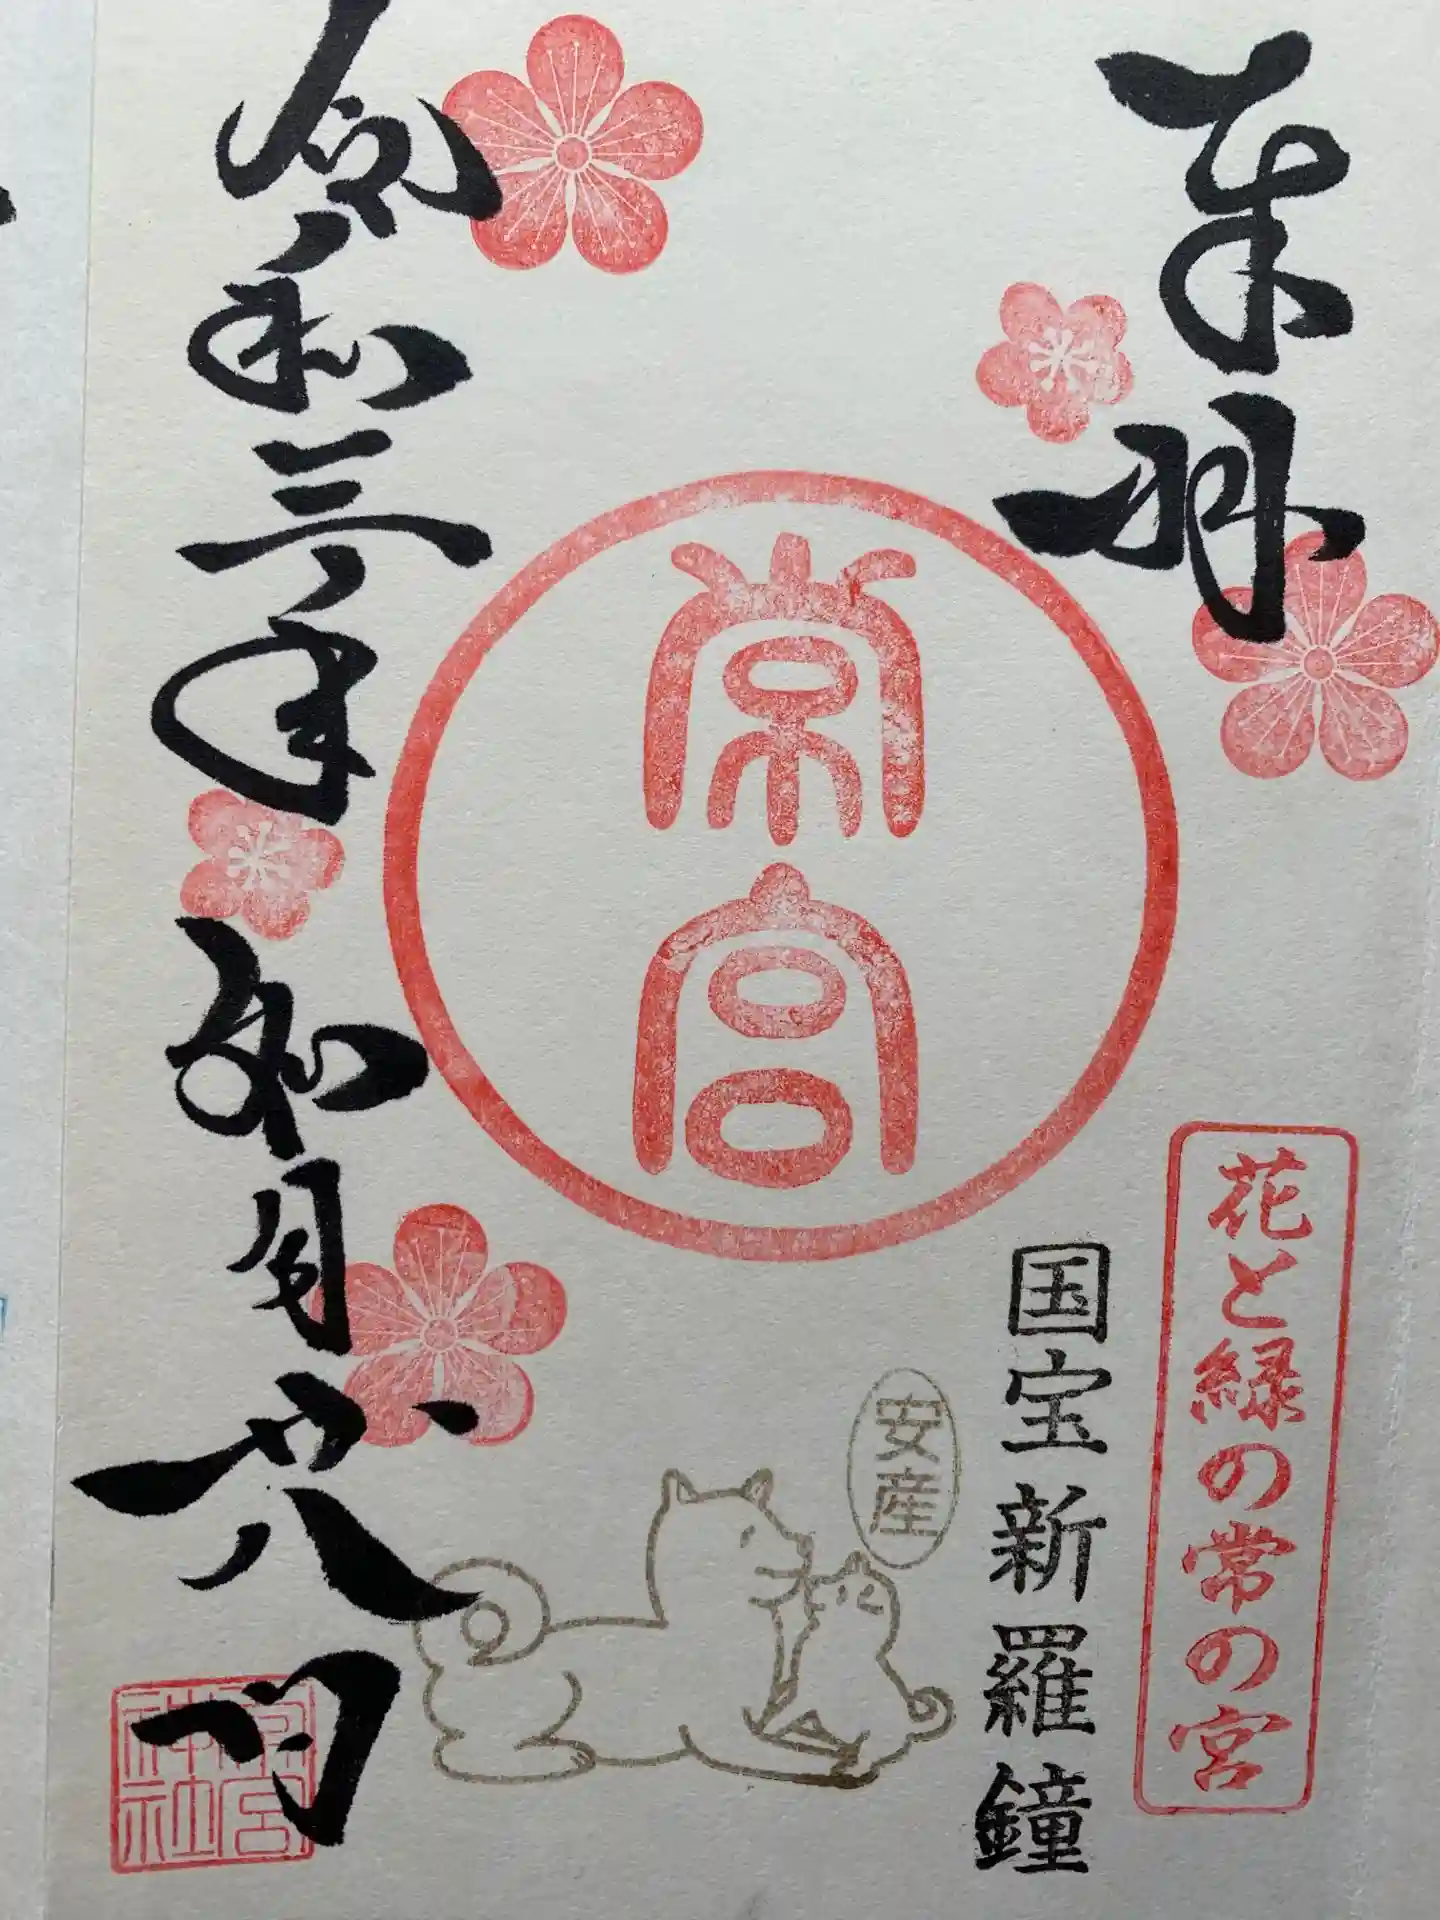 奉拝
花と緑の常の宮
国宝新羅鐘
安産
常宮
令和三年
月
八日
常宮
神社